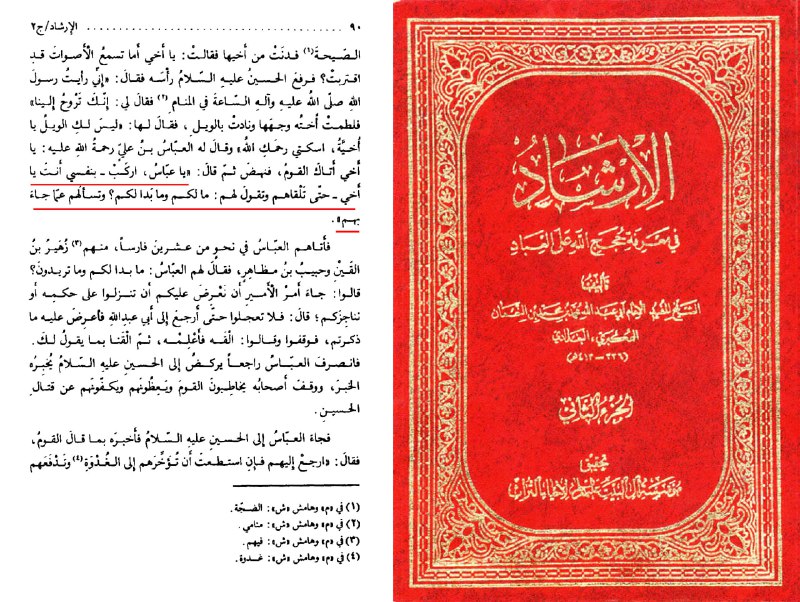 ٩٠ ........................ الإرشاد/ج٢
الصّيحةَ(١) فدنَتْ من أخيها فقالتْ: يا أخي أما تسمعُ الأصواتَ قدِ
اقتربتْ؟ فرفعَ الحسينُ عليهِ السّلامُ رأسَه فقالَ: «إنِّي رأيتُ رسولَ
اللهِ صلّى اللهُ عليهِ وآلهِ السّاعةَ في المنامِ(٢) فقالَ لي: إنّكَ تَرُوحُ إلينا»
فلطمَتْ أُختُه وجهَها ونادتْ بالويلِ، فقالَ لها: «ليسَ لكِ الويلُ يا
أُخيّةُ، اسكتي رحمَكِ اللهُ» وقالَ له العبّاسُ بنُ عليٍّ رحمةُ اللهِ عليه: يا
أخي أتاكَ القومُ، فنهضَ ثمّ قالَ: «يا عبّاسُ، اركَبْ ـ بنفسي أنتَ يا
أخي ـ حتّى تَلْقاهم وتقولَ لهم: ما لكم وما بدا لكم؟ وتسألَهم عمّا جاءَ
بهم».
فأتاهم العبّاسُ في نحوٍ من عشرينَ فارساً، منهم(٣) زُهَيرُ بنُ
القَيْنِ وحبيبُ بنُ مظاهِرٍ، فقالَ لهم العبّاسُ: ما بدا لكم وما تريدونَ؟
قالوا: جاءَ أمرُ الأميرِ أن نَعْرِضَ عليكم أن تنزلوا على حكمِه أو
نناجزَكم؛ قالَ: فلا تعجلوا حتّى أرجعَ إلى أبي عبدِاللهِ فأعرضَ عليه ما
ذكرتم، فوقفوا وقالوا: الْقَه فأَعْلِمْه، ثمّ الْقَنا بما يقولُ لكَ.
فانصرفَ العبّاسُ راجعاً يركضُ إلى الحسينِ عليهِ السّلامُ يُخبرُه
الخبرَ، ووقفَ أصحابُه يخاطِبونَ القومَ ويَعِظُونَهم ويكفّونَهم عن قتالِ
الحسينِ.
فجاءَ العبّاسُ إلى الحسينِ عليهِ السّلامُ فأخبرَه بما قالَ القومُ،
فقالَ: «ارجعْ إليهم فإنِ استطعتَ أن تُؤَخِّرَهم إلى الغُدْوَةِ(٤) وتَدْفَعَهم
(١) في «م» وهامش «ش»: الضجّة.
(٢) في «م» وهامش «ش»: منامي.
(٣) في «م» وهامش «ش»: فيهم.
(٤) في «م» وهامش «ش»: غدوة.
الإرشاد
في معرفة حجج الله على العباد
تأليف
الشيخ المفيد الإمام أبي عبد الله محمد بن محمد بن النعمان
العكبري، البغدادي
(٣٣٦ ـ ٤١٣ هـ)
الجزء الثاني
تحقيق
مؤسسة آل البيت عليهم السلام لإحياء التراث